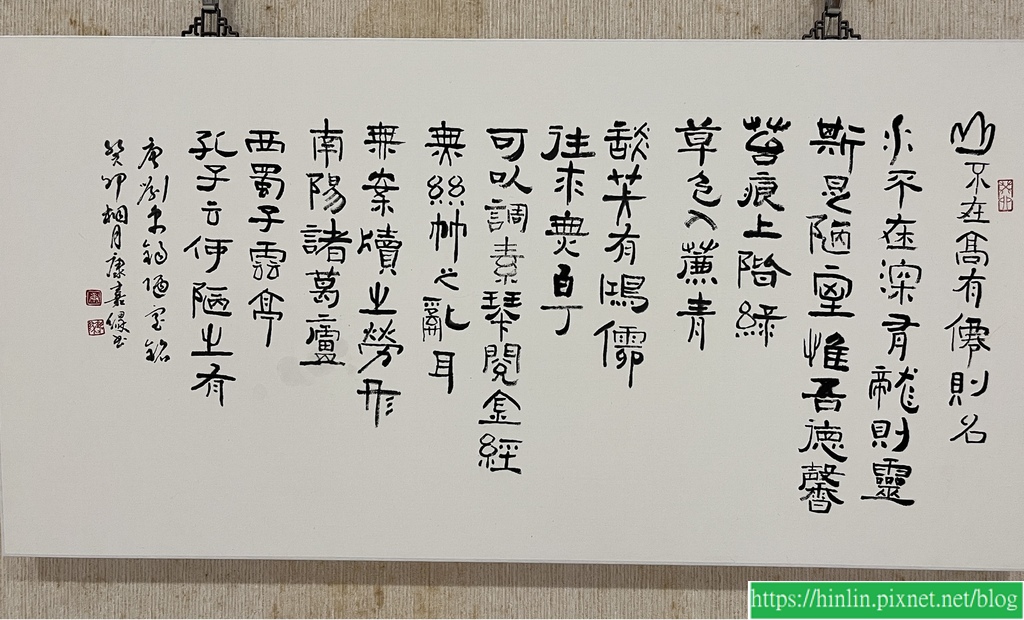 山不在高有僊則名
水不在深有龍則靈
斯是陋室惟吾德馨
苔痕上階綠
草色入簾青
談笑有鴻儒
往來無白丁
可以調素琴閱金經
無絲竹之亂耳
無案牘之勞形
南陽諸葛廬
西蜀子雲亭
孔子云何陋之有
唐劉禹錫陋室銘
癸卯桐月康嘉書
https://hinlin.pixnet.net/blog